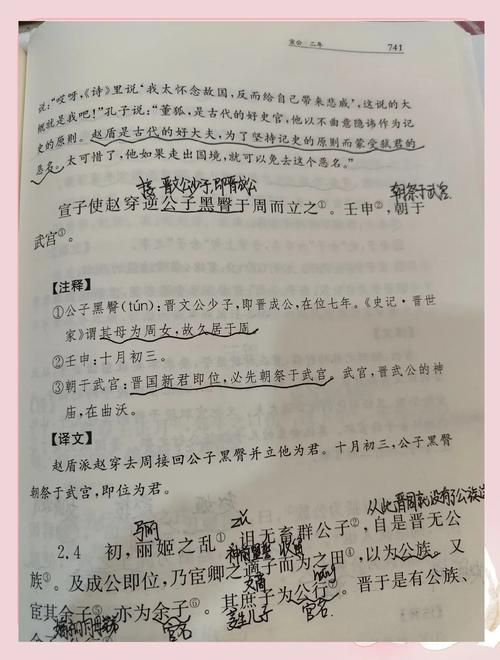 宣公 二年 741
说:“哎呀,《诗》里说‘我太怀念故国,反而给自己带来悲戚’,这说的大
概就是我吧!”孔子说:“董狐,是古代的好史官,他以不曲意隐讳作为记
史的原则。赵盾是古代的好大夫,为了坚持记史的原则而蒙受弑君的
恶名。太可惜了,他如果走出国境,就可以免去这个恶名。”
晋文公少子,即晋成公
朝祭于武宫
宣子使赵穿逆公子黑臀于周而立之①。壬申②,朝于
武宫③。
【注释】
①公子黑臀(tún):晋文公少子,即晋成公,在位七年。《史记·晋世
家》谓其母为周女,故久居于周。
②壬申:十月初三。
③朝于武宫:晋国新君即位,必先朝祭于武宫。武宫,晋武公的神
庙,在曲沃。
【译文】
赵盾派赵穿去周接回公子黑臀并立他为君。十月初三,公子黑臀
朝祭于武宫,即位为君。
从此晋国就没有了公族
骊 zǔ
2.4 初,丽姬之乱①,诅无畜群公子②,自是晋无公
收留
族③。及成公即位,乃宦卿之適子而为之田④,以为公族。又
háng
宦其余子⑤,亦为余子⑥。其庶子为公行⑦。晋于是有公族、
官名 妾生儿子 官名